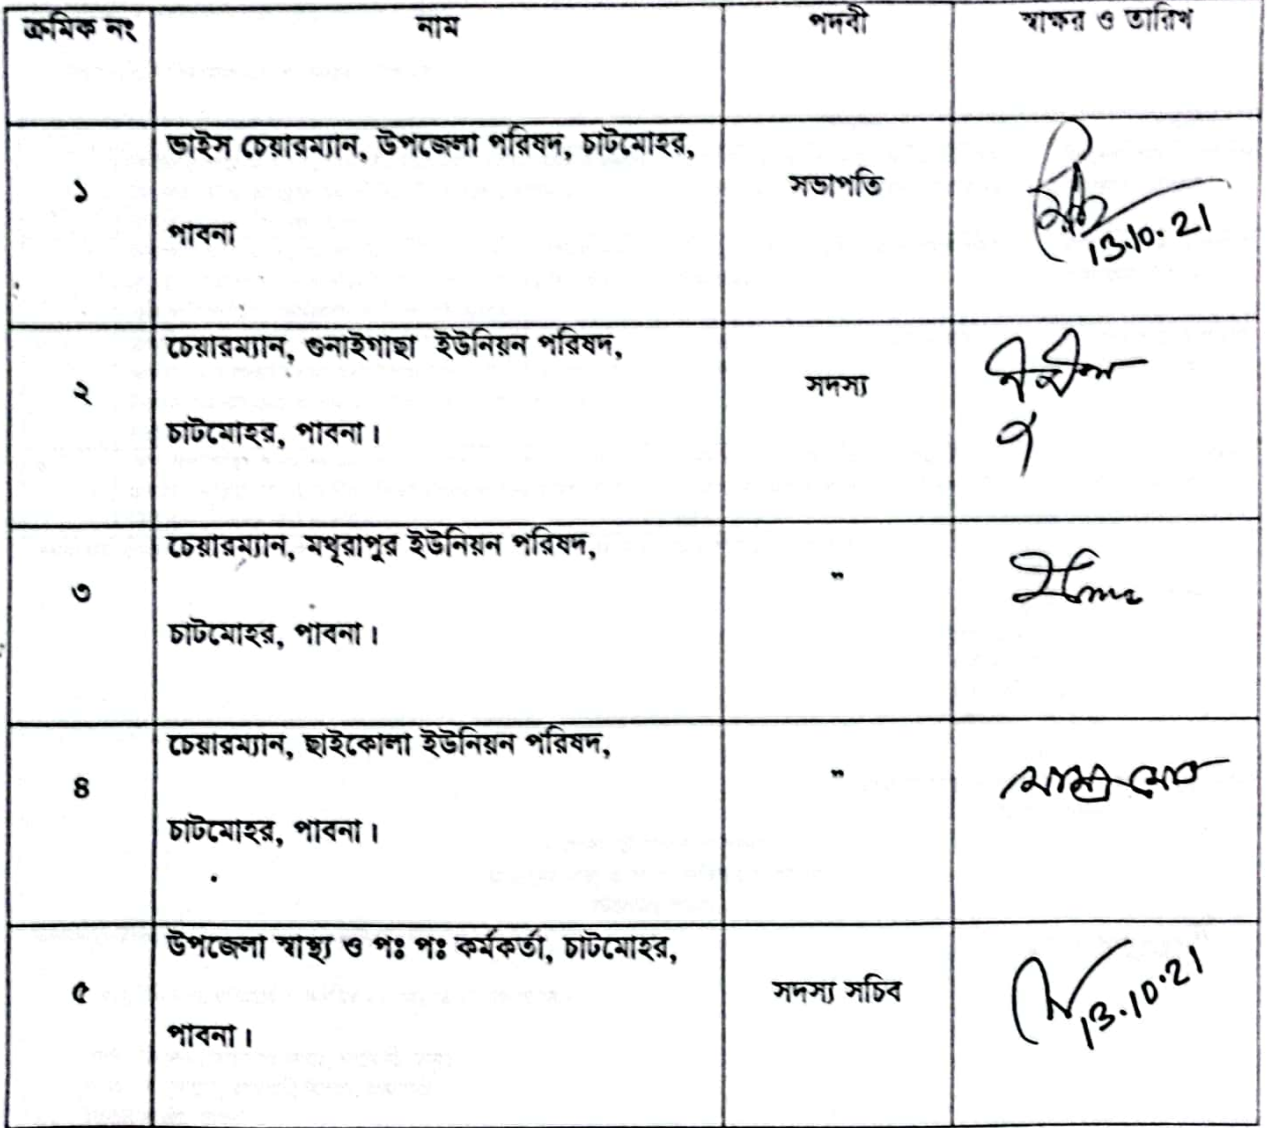 ক্রমিক নং নাম পদবী স্বাক্ষর ও তারিখ
ভাইস চেয়ারম্যান, উপজেলা পরিষদ, চাটমোহর,
১ সভাপতি
পাবনা
13.10.21
চেয়ারম্যান, গুনাইগাছা ইউনিয়ন পরিষদ,
২ সদস্য
চাটমোহর, পাবনা।
চেয়ারম্যান, মথুরাপুর ইউনিয়ন পরিষদ,
৩ "
চাটমোহর, পাবনা।
চেয়ারম্যান, ছাইকোলা ইউনিয়ন পরিষদ,
৪ "
চাটমোহর, পাবনা।
উপজেলা স্বাস্থ্য ও পঃ পঃ কর্মকর্তা, চাটমোহর,
৫ সদস্য সচিব 13.10.21
পাবনা।